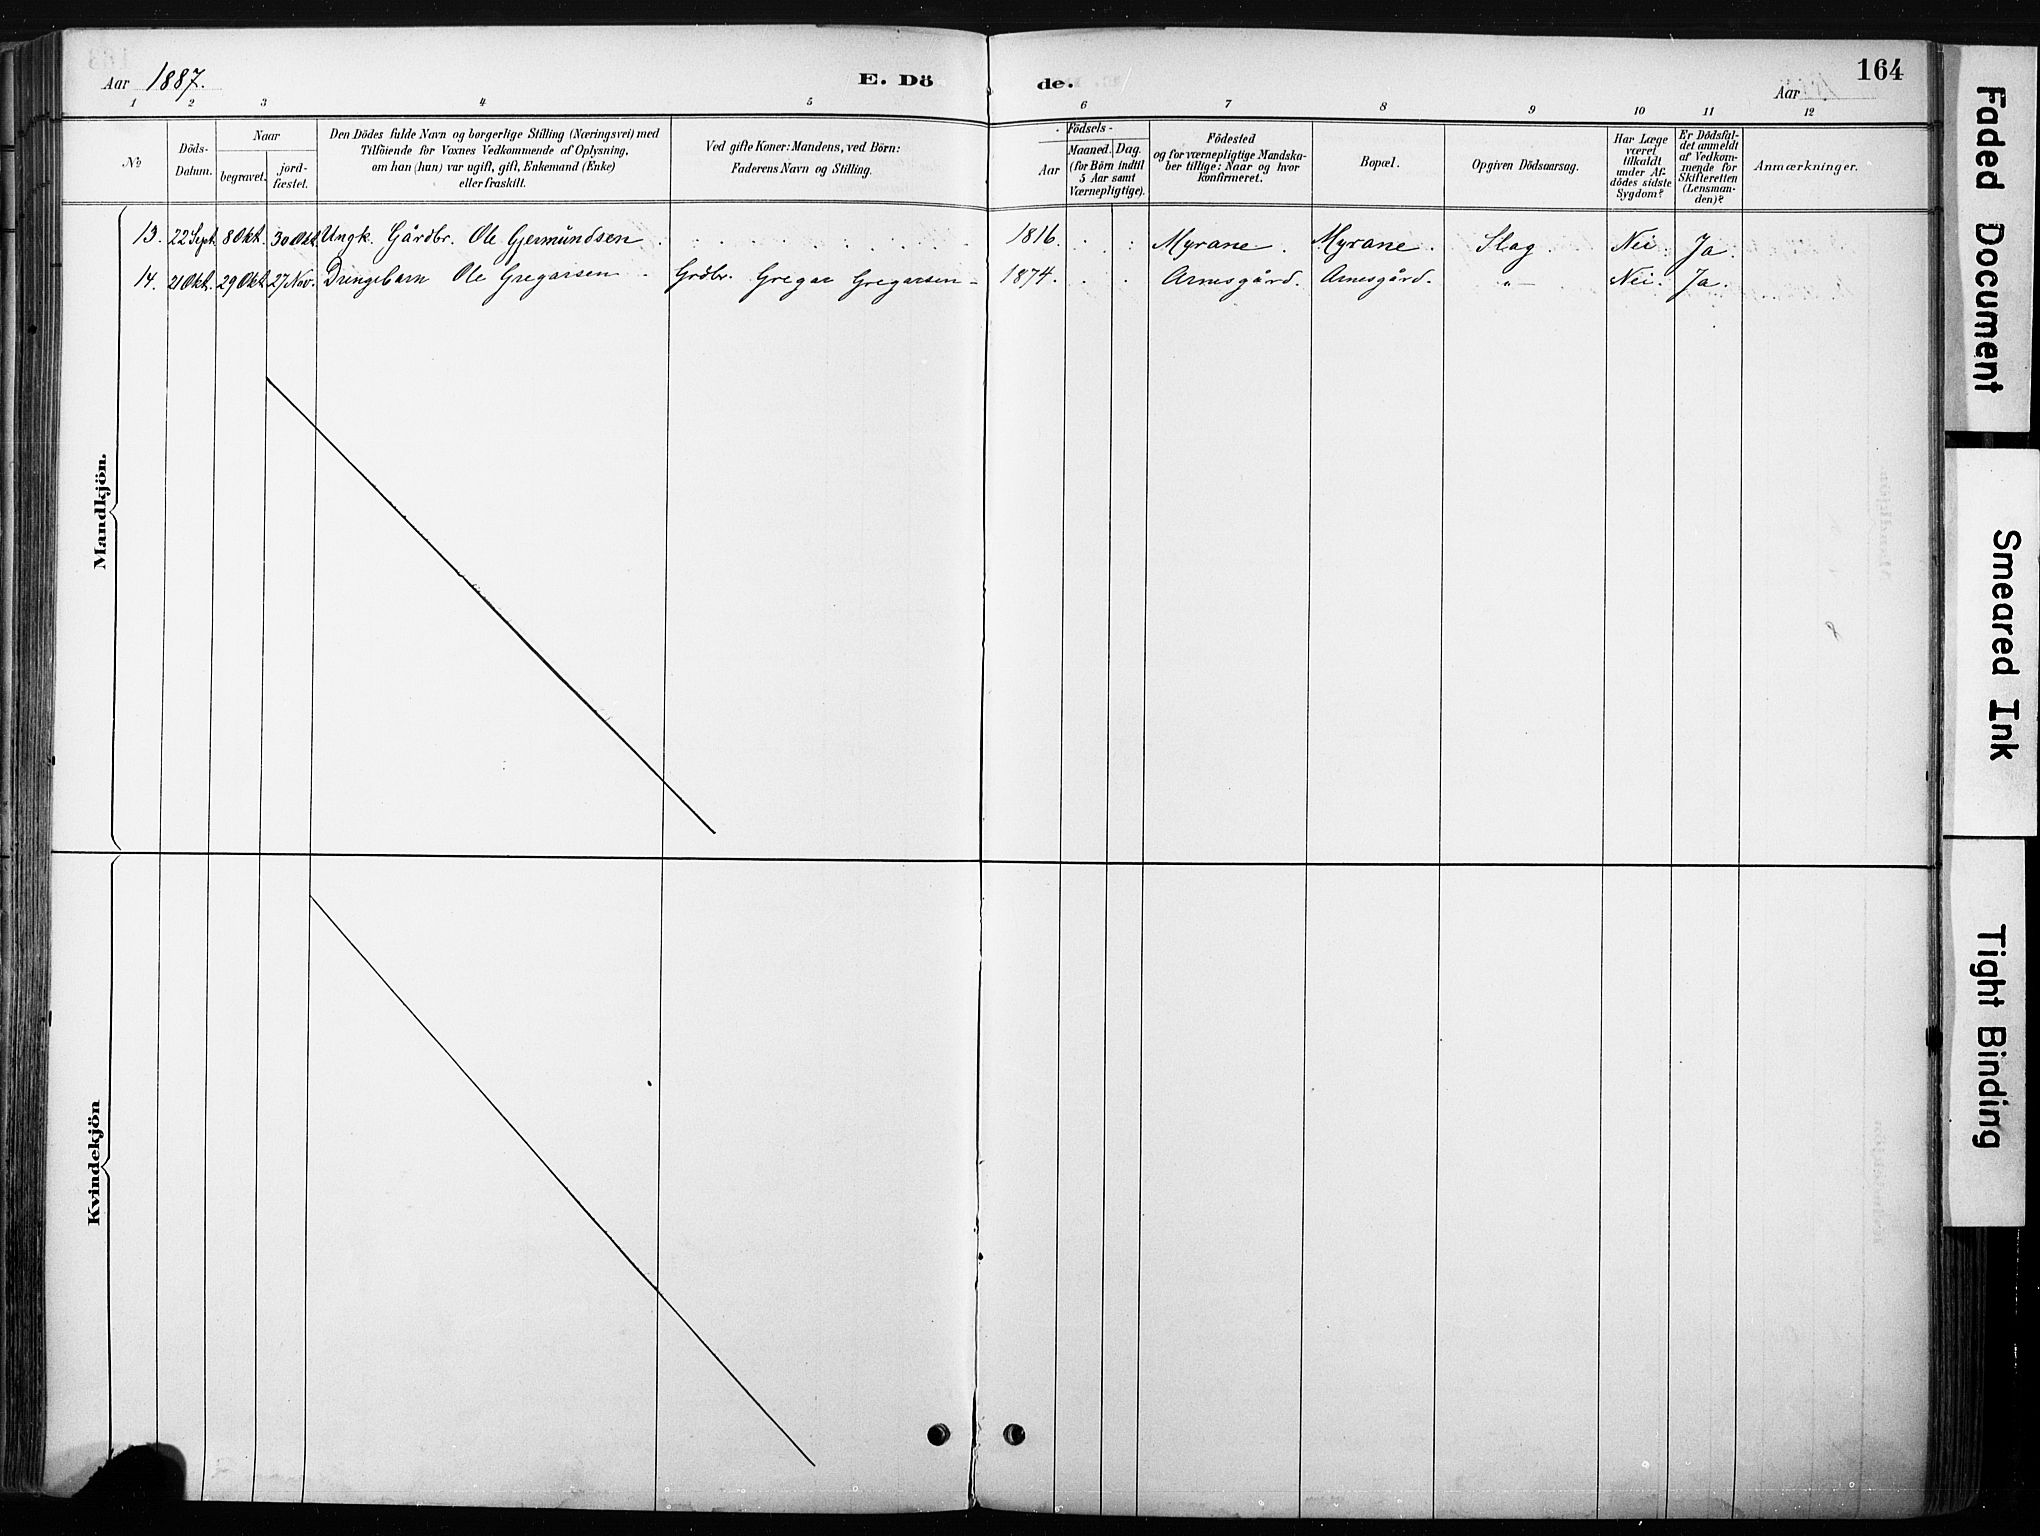 Aar 1887.
E. Dö
de.
Aar
164
1 2 3 4 5 6 7 8 9 10 11 12
No
Döds-
Datum.
Naar
begravet.
jord-
fæstet.
Den Dödes fulde Navn og borgerlige Stilling (Næringsvei) med
Tilföiende for Voxnes Vedkommende af Oplysning,
om han (hun) var ugift, gift, Enkemand (Enke)
eller fraskilt.
Ved gifte Koner: Mandens, ved Börn:
Faderens Navn og Stilling.
Födsels-
Aar
Maaned. Dag.
(for Börn indtil
5 Aar samt
Værnepligtige).
Födested
og for værnepligtige Mandska-
ber tillige: Naar og hvor
konfirmeret.
Bopæl.
Opgiven Dödsaarsag.
Har Læge
været
tilkaldt
under Af-
dödes sidste
Sygdom?
Er Dödsfal-
det anmeldt
af Vedkom-
mende for
Skifteretten
(Lensman-
den)?
Anmærkninger.
13. 22 Sept. 8 Okt. 30 Okt. Ungk. Gårdbr. Ole Gjermundsen 1816. Myrane. Myrane. Slag. Nei. Ja.
14. 21 Okt. 29 Okt. 27 Nov. Drengebarn Ole Gregarsen Grdbr. Gregar Gregarsen 1874. Arnesgård. Arnesgård. "— Nei. Ja.
Mandkjön.
Kvindekjön
Faded Document
Smeared Ink
Tight Binding